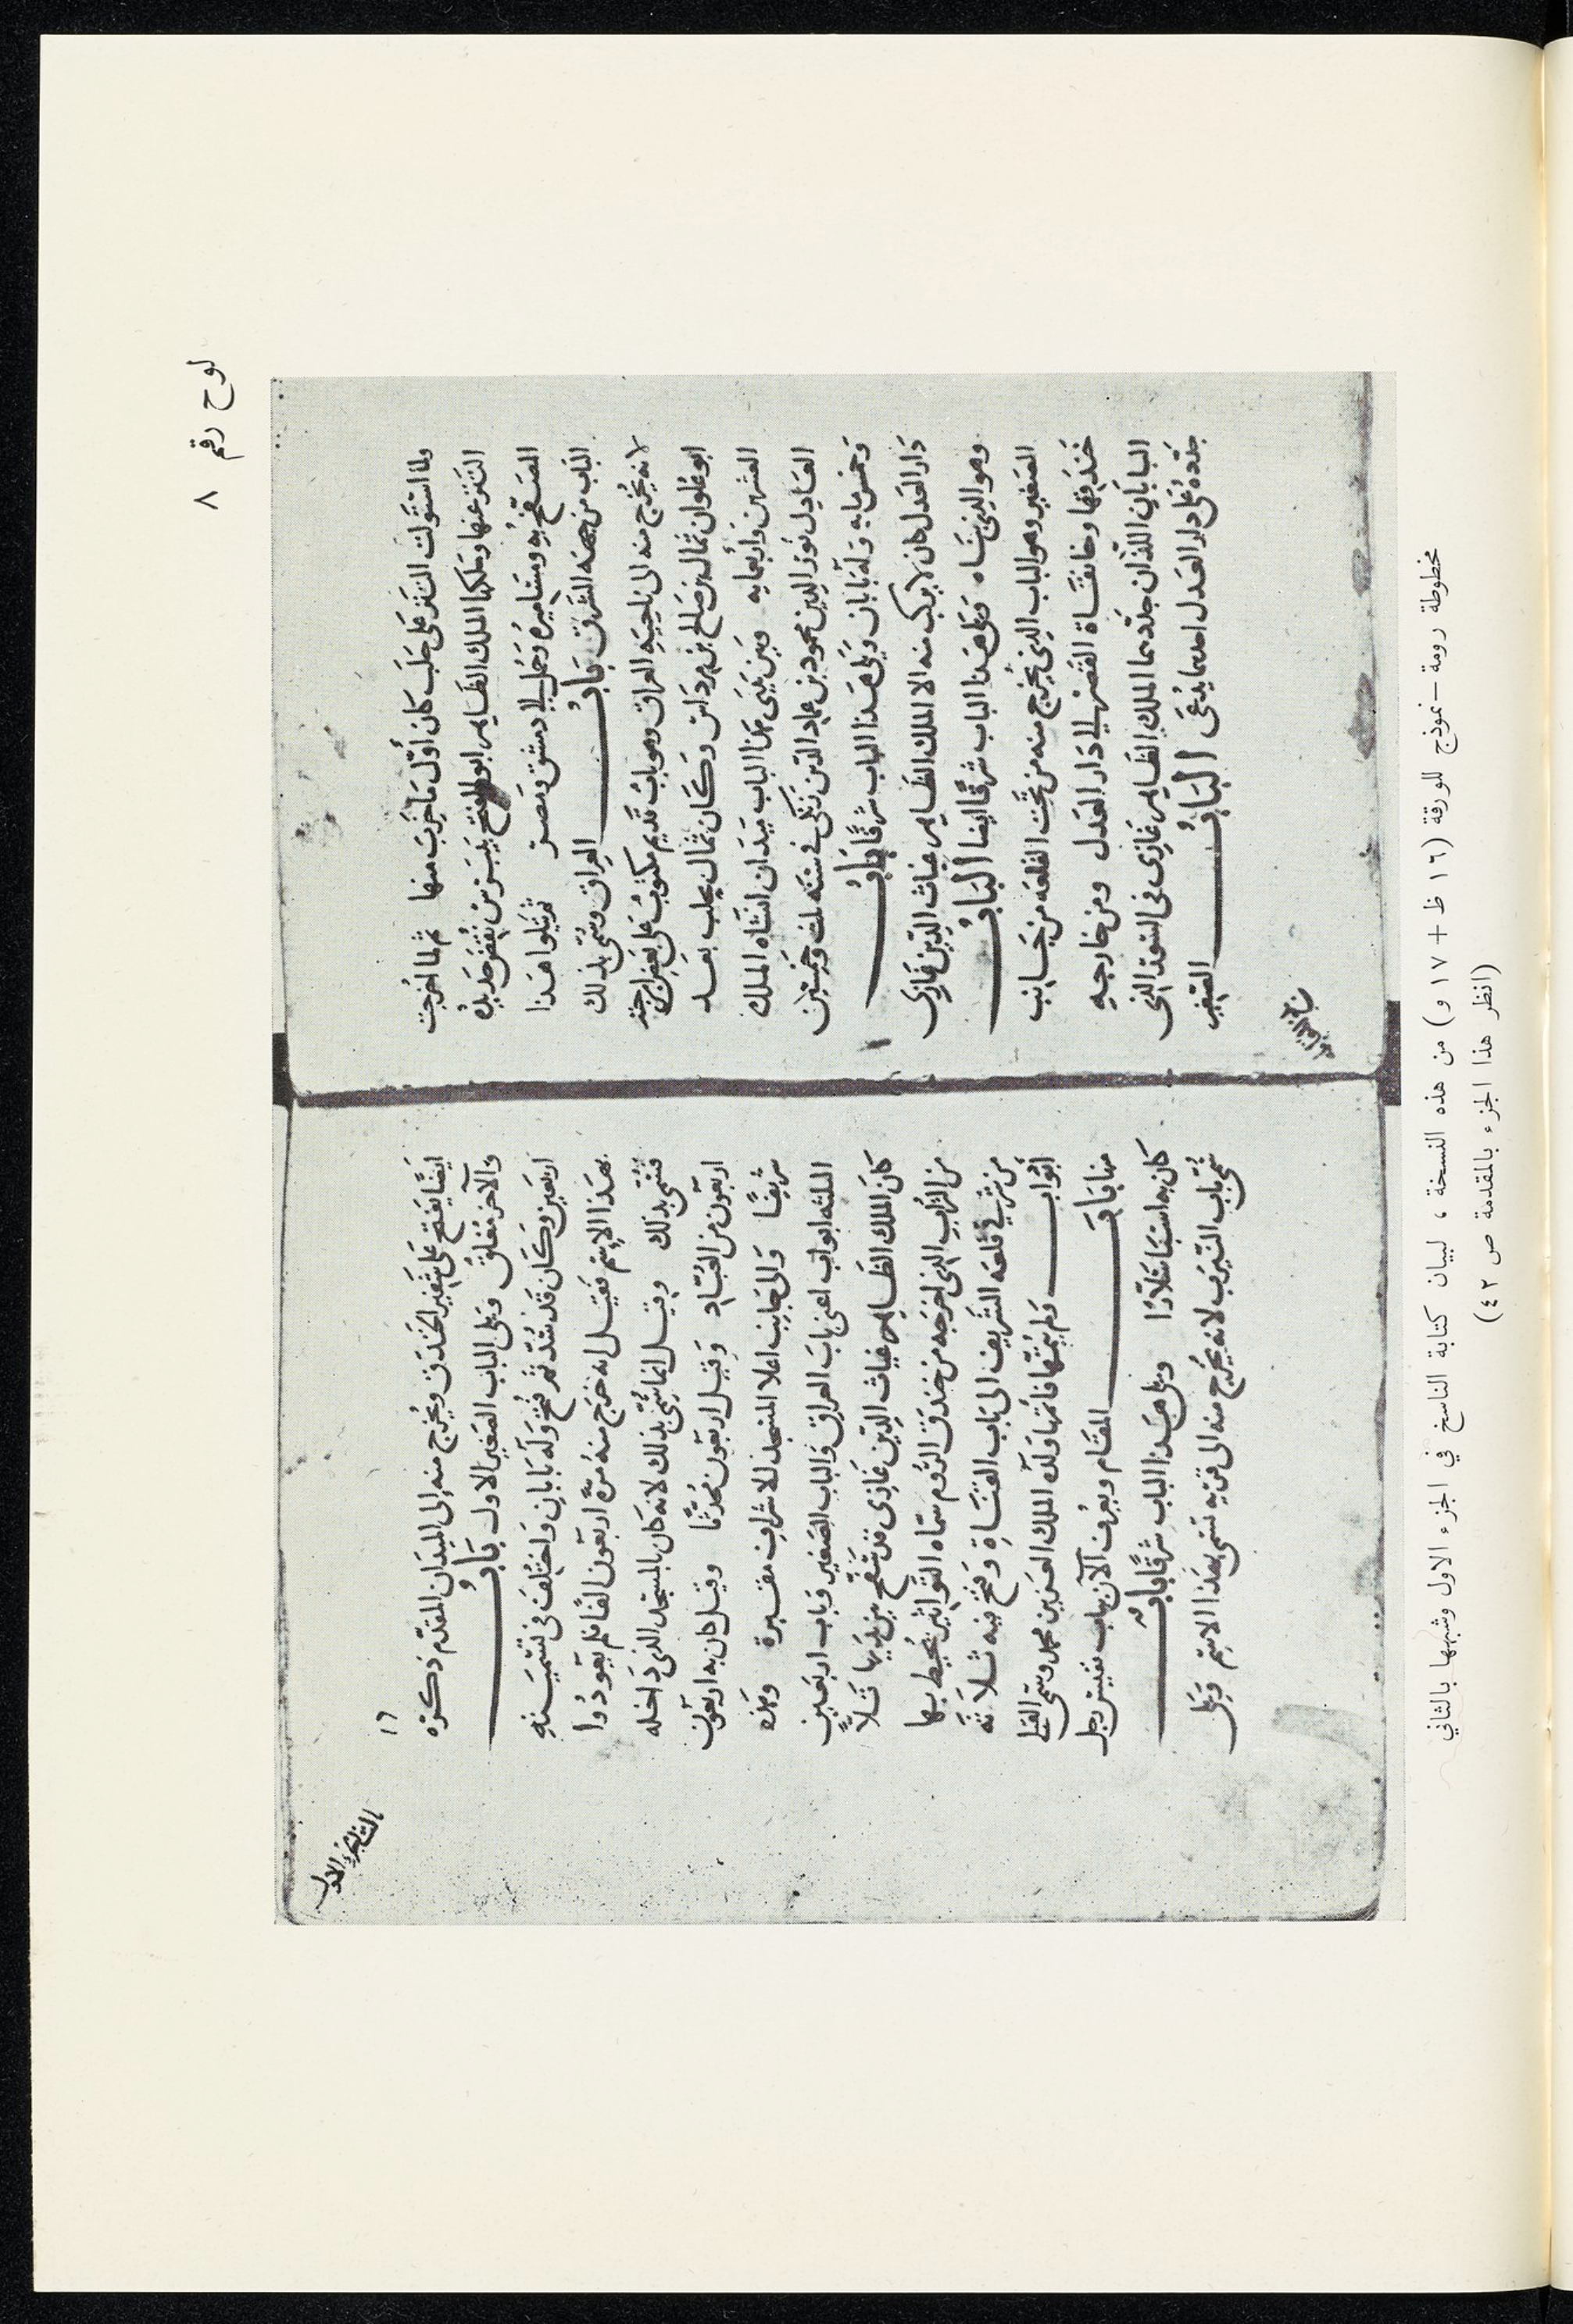 لوح رقم ٨
ولما استولت التتر على حلب كان أول ما خرب منها ثم لما أخرجت
التتر عنها وملكها الملك الظاهر ابو الفتح بيبرس نقض حديده
المصفح به ومساميره وحمل الى دمشق ومصر ثم يتلوا هذا
الباب من جهة الشرق باب العراق وسمي بذلك
لانه يخرج منه الى ناحية العراق وهو باب قديم مكتوب على بعض
ابو علوان ثمال بن صالح بن مرداس وكان ثمال بحلب بعد
العشرين وأربعمايه وبين يدي هذا الباب ميدان انشاه الملك
العادل نور الدين محمود بن عماد الدين زنكى في سنة ثلث وخمسين
وخمس مايه وله بابان ويلي هذا الباب شرقا باب
دار العدل كان لا يركب منه الا الملك الظاهر غياث الدين غازى
وهو الذى بناه ويلي هذا الباب شرقا ايضا الباب
الصغير وهو الباب الذى يخرج منه من تحت القلعه من جانب
خندقها وخانقاة القصر الى دار العدل ومن خارجه
البابان اللذان جددهما الملك الظاهر غازى فى السور الذى
جدده على دار العدل احدهما يدعى الباب الصغير
١٦
ايضا يفتح على شفير الخندق ويخرج منه الى الميدان المقدم ذكره
والآخر مغلق ويلى الباب الصغير الاول باب
اربعين وكان قد سد ثم فتح وله بابان واختلف فى تسميته
بهذا الاسم فقيل انه خرج منه مرة اربعون الفا فلم يعودوا
فسمى بذلك وقيل انما سمى بذلك لانه كان بالمسجد الذى داخله
اربعون من العباد وقيل اربعون محدثا وقيل كان به اربعون
شريفا والى جانبه اعلا المسجد للاشراف مقبرة وهذه
الثلثه ابواب اعنى باب العراق والباب الصغير وباب اربعين
كان الملك الظاهر غياث الدين غازى قد سفح بين يديها تلا
من التراب الذى اخرجه من خندق الروم سماه التواتير يحيط بها
من شرقى قلعة الشريف الى باب القناة وفتح فيه ثلاثة
ابواب ولم يتمها فاتمها ولده الملك العزيز محمد وسمى القبلى
منها باب المقام ويعرف الآن بباب نفيس رجل
كان به اسباسلارا ويلى هذا الباب شرقا باب
سمى باب النيرب لانه يخرج منه الى قريه تسمى بهذا الاسم ويلى
مخطوطة رومة – نموذج للورقة (١٦ ظ + ١٧ و) من هذه النسخة ، لبيان كتابة الناسخ في الجزء الاول وشبهها بالثاني
(انظر هذا الجزء بالمقدمة ص ٤٢)